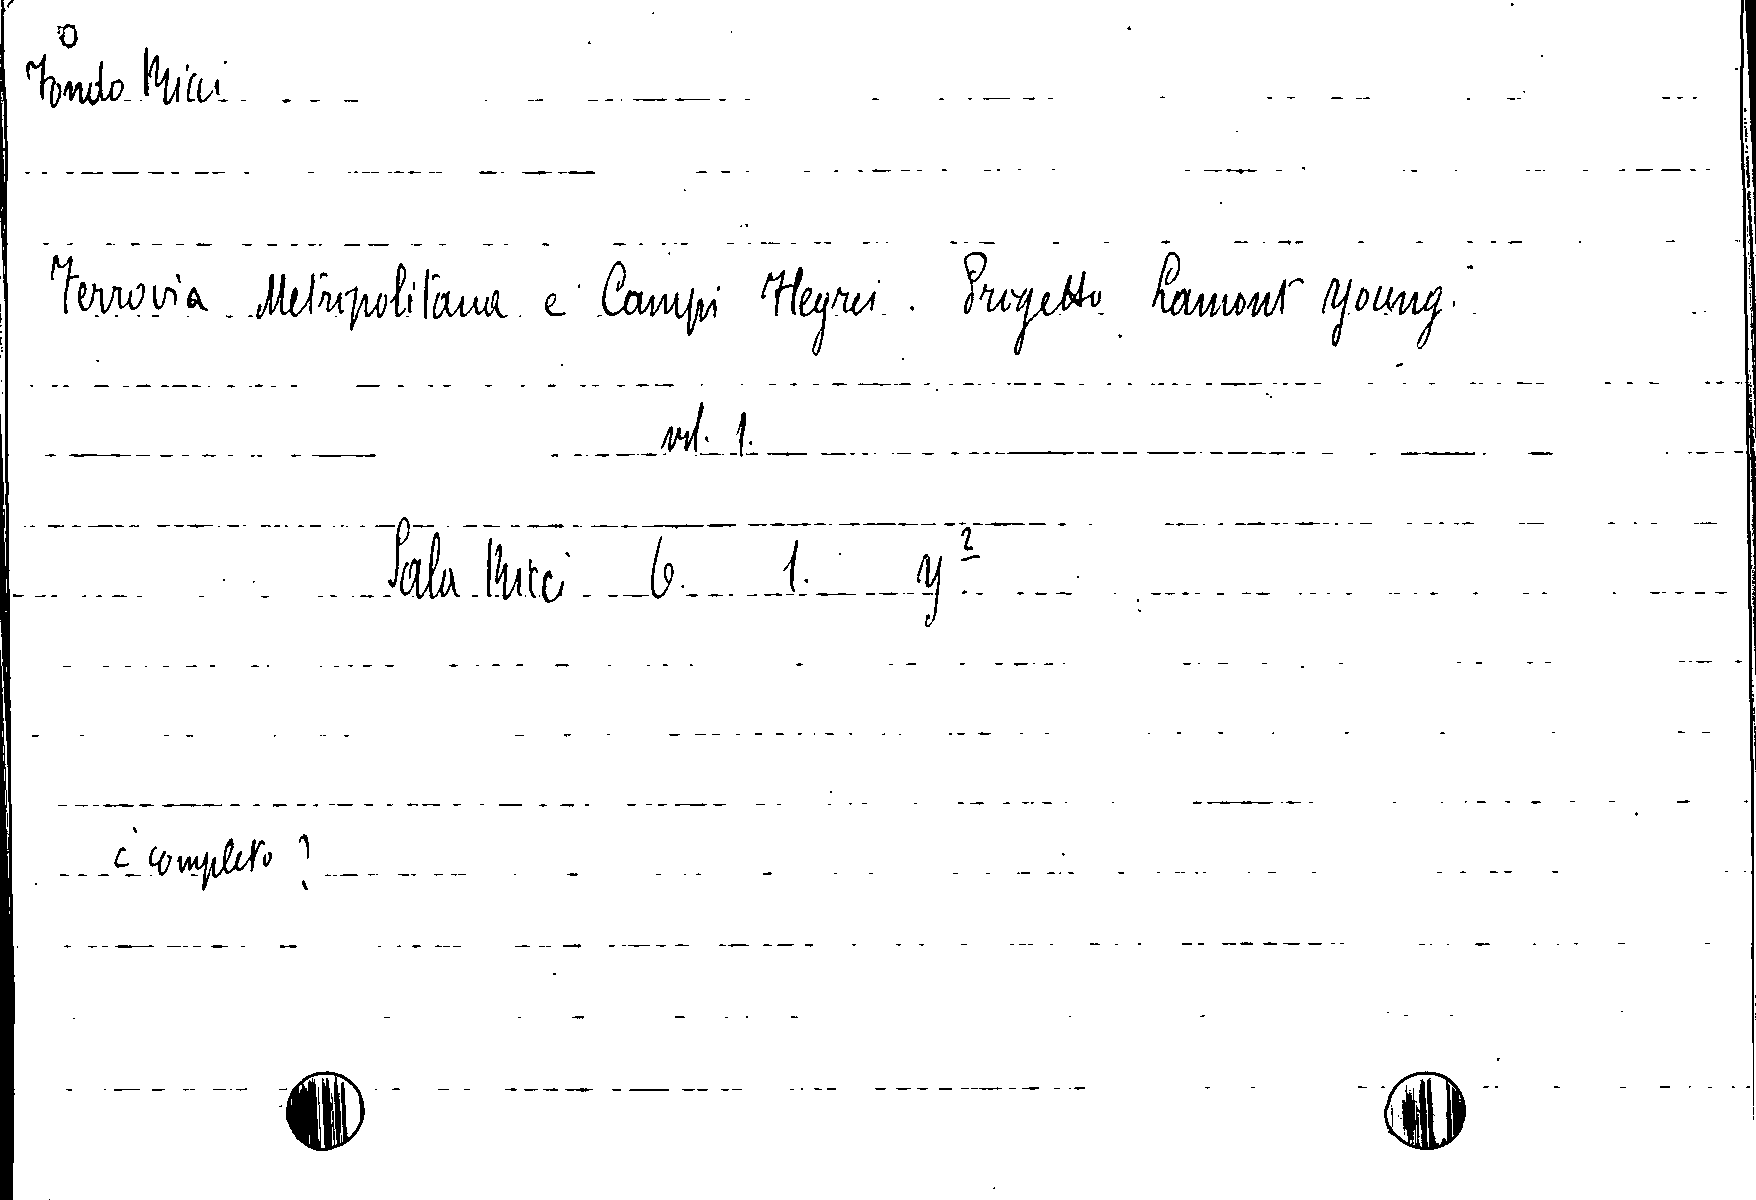 Fondo Ricci
Ferrovia Metropolitana e Campi Flegrei. Progetto Lamont Young.
vol. 1.
Sala Ricci 6. 1. y²
è completo?